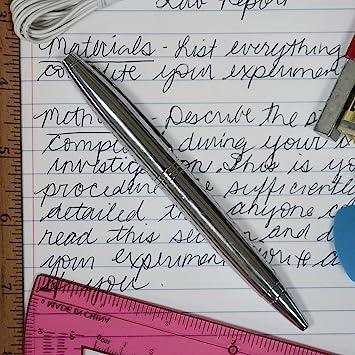 Lab Report
Materials - List everything
your experimen
Meth - Describe the s
comp during your
investi on. This is y
procedu be sufficientl
detailed anyone c
read this se and d
your experim write a
you.
MADE IN CHINA